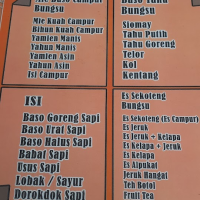 Bungsu
Mie Kuah Campur
Bihun Kuah Campur
Yamien Manis
Yahun Manis
Yamien Asin
Yahun Asin
Isi Campur
Bungsu
Siomay
Tahu Putih
Tahu Goreng
Telor
Kol
Kentang
ISI
Baso Goreng Sapi
Baso Urat Sapi
Baso Halus Sapi
Babat Sapi
Usus Sapi
Lobak / Sayur
Dorokdok Sapi
Es Sekoteng
Bungsu
Es Sekoteng (Es Campur)
Es Jeruk
Es Jeruk + Kelapa
Es Kelapa + Jeruk
Es Kelapa
Es Alpukat
Jeruk Hangat
Teh Botol
Fruit Tea